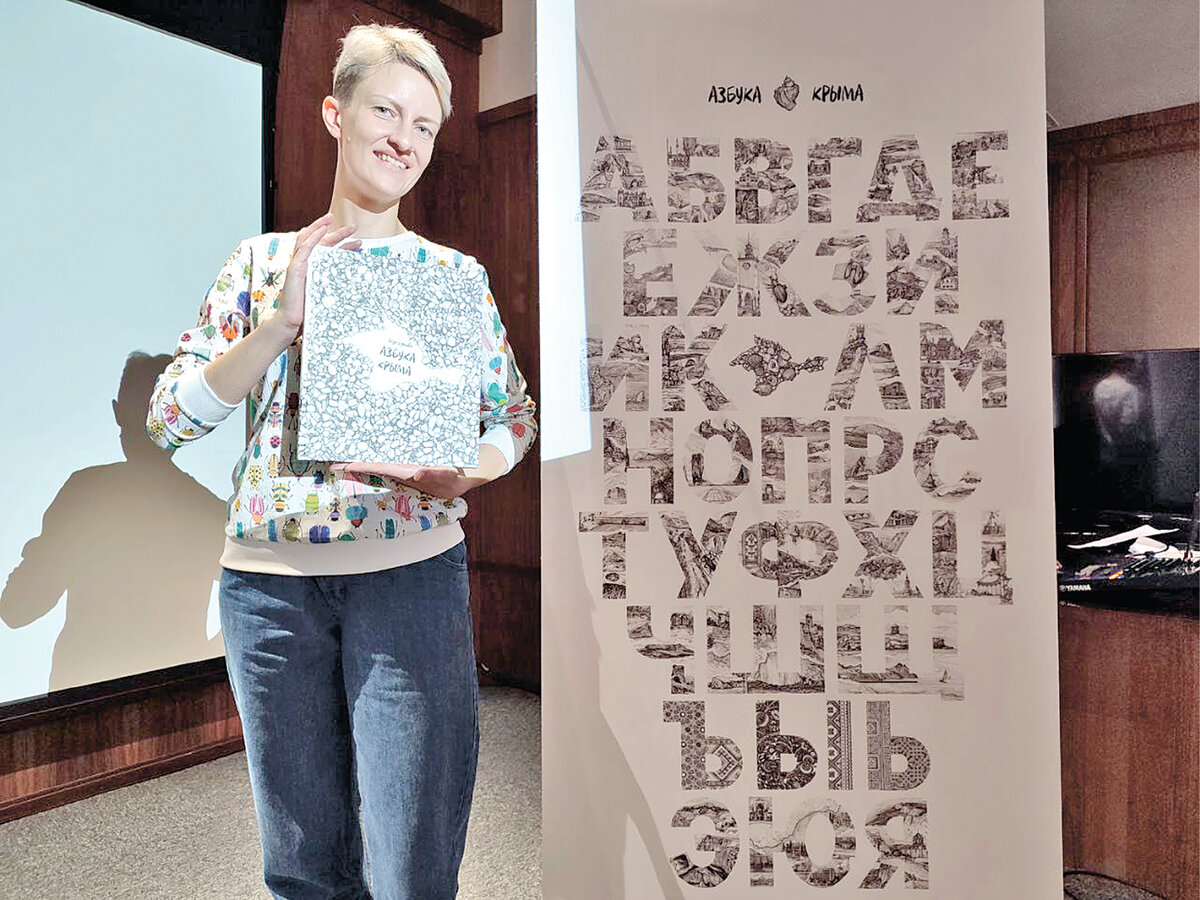 АЗБУКА КРЫМА
АБВГДЕ
ЕЖЗИ
ИК ЛМ
НОПРС
ТУФХЦ
ЧШЩ
ЪЫЬ
ЭЮЯ
АЗБУКА
КРЫМА
YAMAHA